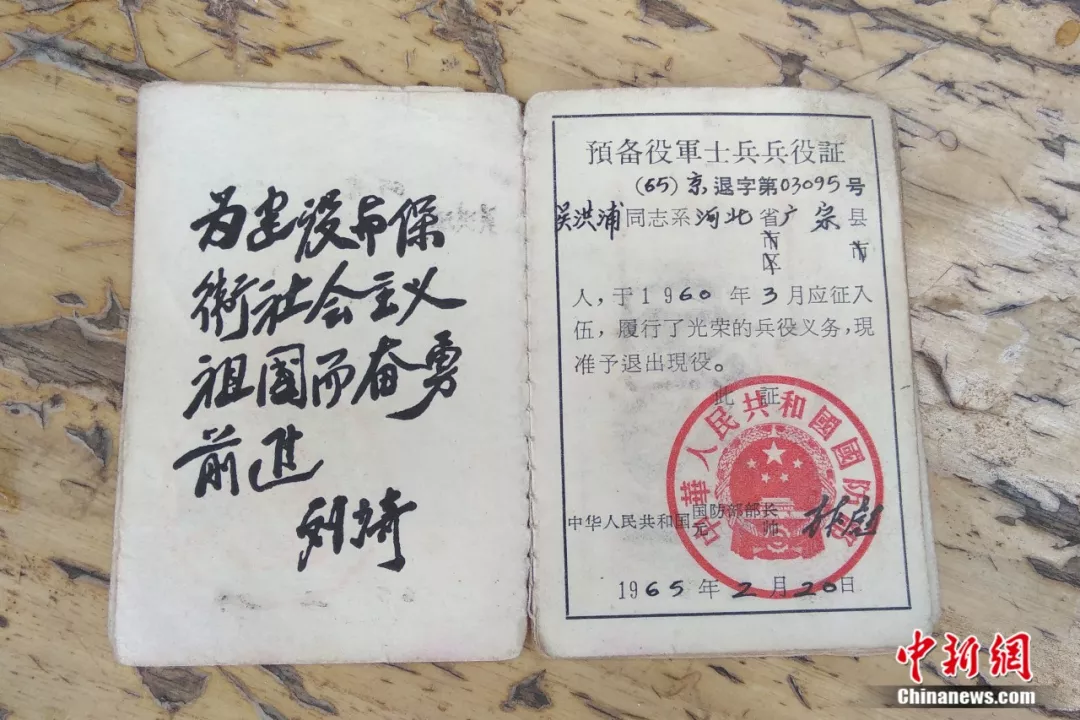 为建设与保
衛社会主义
祖国而奋勇
前進
预备役軍士兵兵役証
(65)京退字第03095号
吴洪浦同志系河北省广宗县
市 市
区
人，于1960年3月应征入
伍，履行了光荣的兵役义务，現
准予退出現役。
此証
中華人民共和國國防部
中华人民共和国国防部部长
元 帅 林彪
1965年2月20日
中新网
Chinanews.com